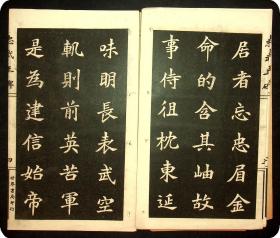 居者忘忠眉金
命的含其岫故
事侍徂枕東延
味明長表武空
軌則前英苦軍
是為建信始帝